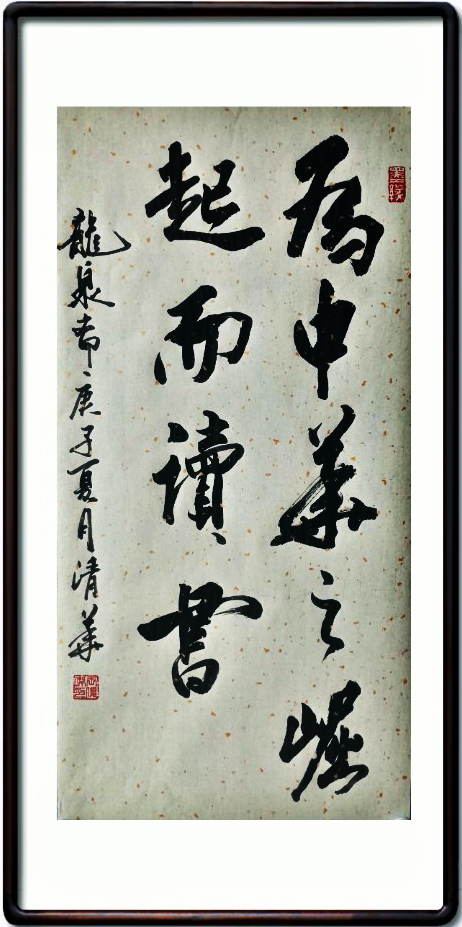 為中華之崛
起而讀書
龍泉市庚子夏月清華